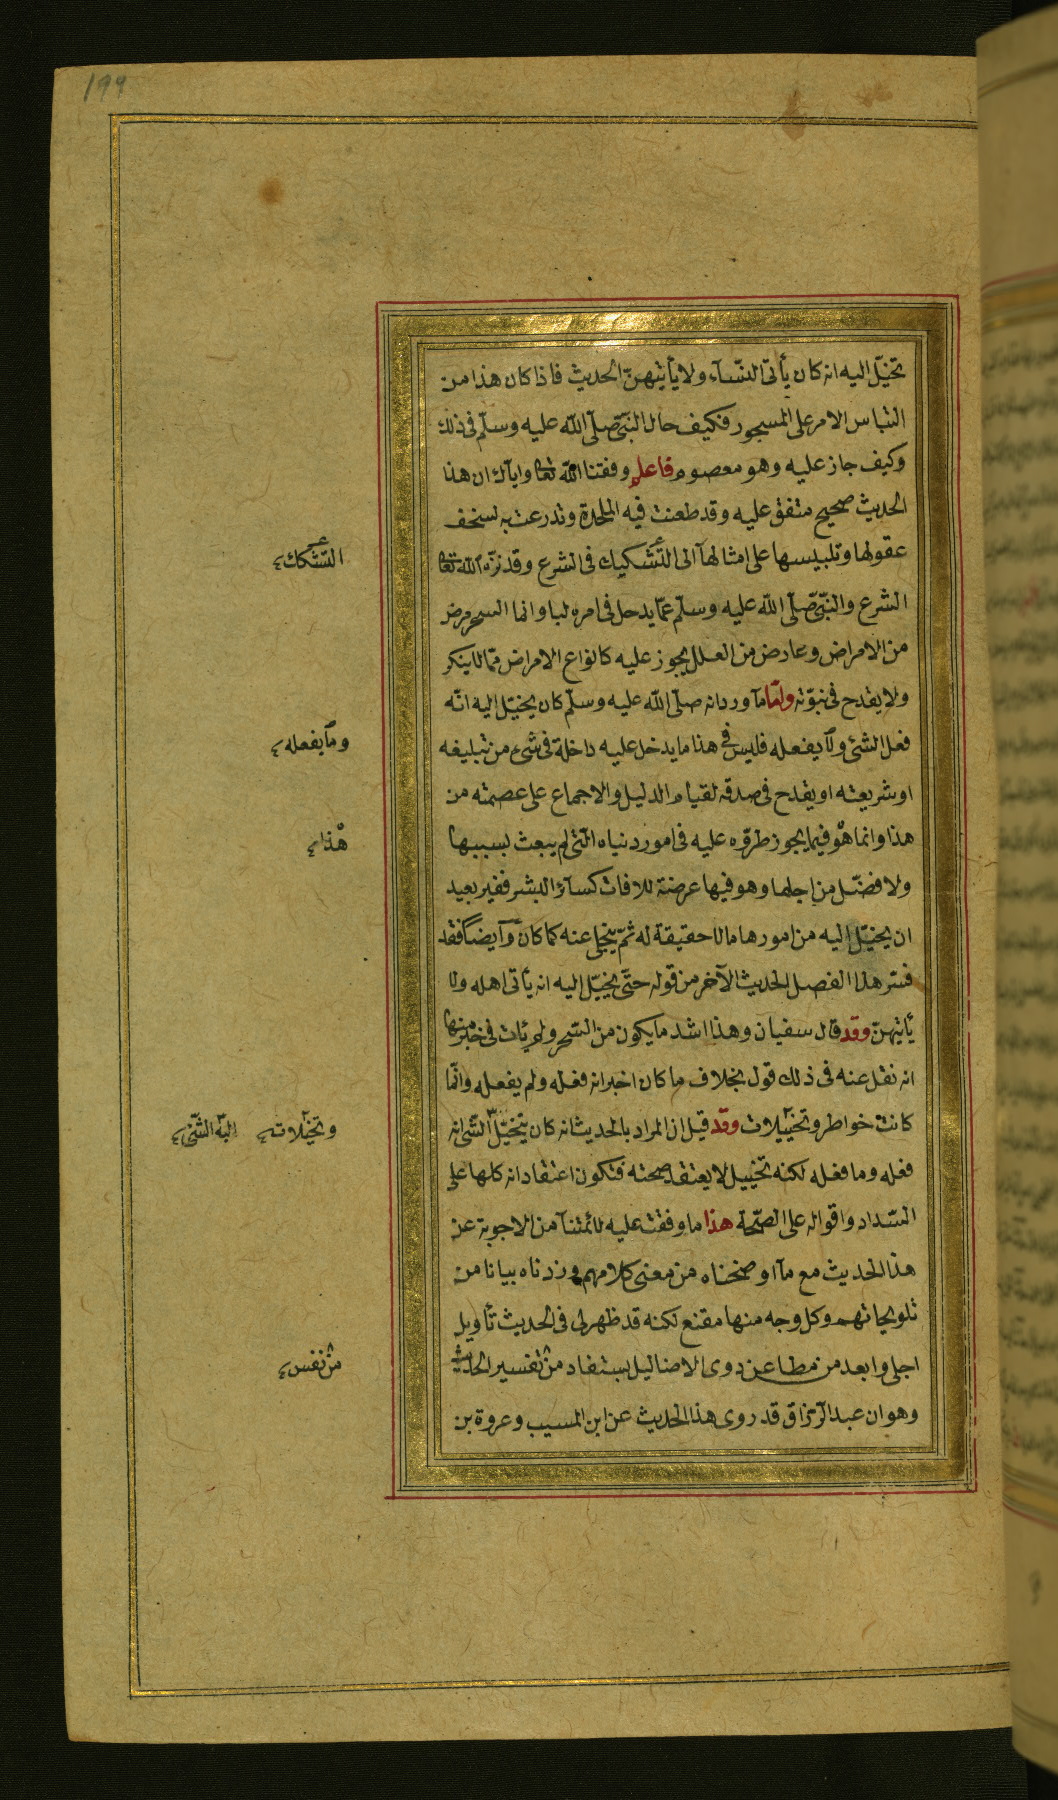 ١٩٩
تخيّل اليه انه كان يأتى النّسآء ولا يأتيهنّ الحديث فاذا كان هذا من
التباس الامر على المسحور فكيف حال النّبىّ صلّى اللّه عليه وسلّم فى ذلك
وكيف جاز عليه وهو معصوم فاعلم وفقنا اللّه تعا واياك ان هذا
الحديث صحيح متفق عليه وقد طعنت فيه الملحدة وتدرعت به لسخف
عقولها وتلبيسها على امثالهآ الى التّشكيك فى الشرع وقد نزّه اللّه تعا
التّشكك
الشرع والنّبىّ صلّى اللّه عليه وسلّم عمّا يدخل فى امره لبسا وانما السحر مرض
من الامراض وعارض من العلل يجوز عليه كانواع الامراض ممّا لا ينكر
ولا يقدح فى نبوّته وامّا مآ ورد انه صلّى اللّه عليه وسلّم كان يخيّل اليه انّه
فعل الشئ ولا يفعله فليس فى هذا ما يدخل عليه داخلة فى شىء من تبليغه
وما يفعله
او شريعته او يقدح فى صدقه لقيام الدليل والاجماع على عصمته من
هذا وانما هو فيما يجوز طروّه عليه فى امور دنياه الّتى لم يبعث بسببها
هذا
ولا فضّل من اجلها وهو فيها عرضة للافات كسآئر البشر فغير بعيد
ان يخيّل اليه من امورها مالا حقيقة له ثمّ ينجلى عنه كما كان وآيضاً فقد
فسّر هذا الفصل الحديث الآخر من قوله حتّى يخيّل اليه انه يأتى اهله ولا
يأتيهنّ وقد قال سفيان وهذا اشد ما يكون من السّحر ولم يأت فى خبر منها
انه نقل عنه فى ذلك قول بخلاف ما كان اخبر انه فعله ولم يفعله وانّما
كانت خواطر وتخييلات وقد قيل ان المراد بالحديث انه كان يتخيّل الشّئ انه
وتخيّلات اليه الشّئ
فعله وما فعله لكنه تخييل لا يعتقد صحته فتكون اعتقاداته كلها على
السّداد واقواله على الصّحّة هذا ما وقفت عليه لائمتنا من الاجوبة عن
هذا الحديث مع مآ اوضحناه من معنى كلامهم وزدناه بيانا من
تلويحاتهم وكل وجه منها مقنع لكنه قد ظهر لى فى الحديث تأويل
اجلى وابعد من مطاعن ذوى الاضاليل يستفاد من تفسير الحديث
من نفس
وهو ان عبد الرّزاق قد روى هذا الحديث عن ابن المسيب وعروة بن